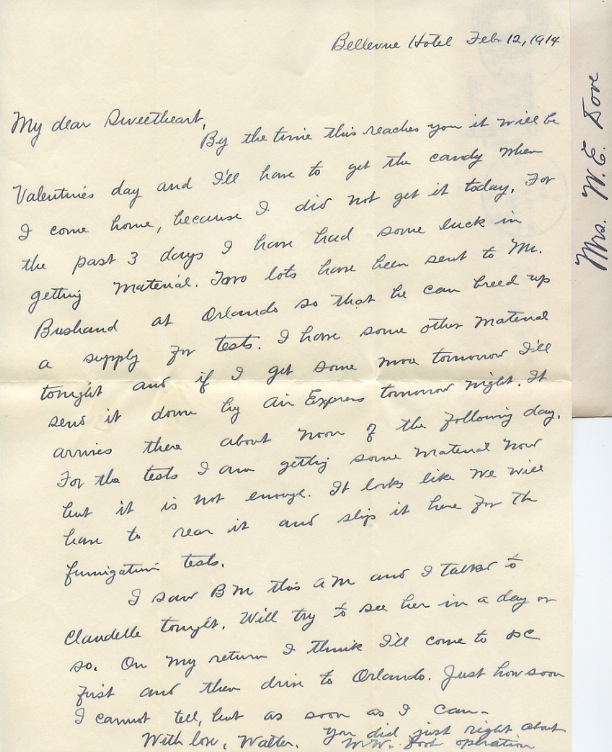 Bellevue Hotel Feb 12, 1914
My dear Sweetheart,
By the time this reaches you it will be
Valentines day and I'll have to get the candy when
I come home, because I did not get it today. For
the past 3 days I have had some luck in
getting material. Two lots have been sent to Mr.
Bushand at Orlando so that he can breed up
a supply for tests. I have some other material
tonight and if I get some more tomorrow I'll
send it down by Air Express tomorrow night. It
arrives there about noon of the following day.
For the tests I am getting some material now
but it is not enough. It looks like we will
have to rear it and ship it here for the
fumigation tests.
I saw BM this AM and I talked to
Claudelle tonight. Will try to see her in a day or
so. On my return I think I'll come to DC
first and then drive to Orlando. Just how soon
I cannot tell, but as soon as I can.
With love, Walter.
you did just right about
operation
Mrs. W. E. Dove